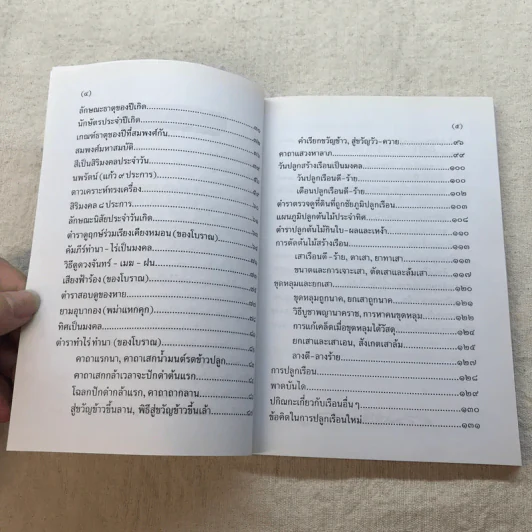 (๔)
ลักษณะธาตุของปีเกิด
นักษัตรประจำปีเกิด
เกณฑ์ธาตุของปีที่สมพงศ์กัน
สมพงศ์มหาสมบัติ
สีเป็นสิริมงคลประจำวัน
นพรัตน์ (แก้ว ๙ ประการ)
ดาวเคราะห์ทรงเครื่อง
สิริมงคล ๘ ประการ
ลักษณะนิสัยประจำวันเกิด
ตำราดูฤกษ์ร่วมเรียงเคียงหมอน (ของโบราณ)
คัมภีร์ทำนา - ไร่เป็นมงคล
วิธีดูดวงจันทร์ - เมฆ - ฝน
เสียงฟ้าร้อง (ของโบราณ)
ตำราสอบดูของหาย
ยามอุบากอง (พม่าแหกคุก)
ทิศเป็นมงคล
ตำราทำไร่ ทำนา (ของโบราณ)
คาถาแรกนา, คาถาเสกน้ำมนต์รดข้าวปลูก
คาถาเสกกล้าเวลาจะปักดำต้นแรก
โฉลกปักดำกล้าแรก, คาถาถากลาน
สู่ขวัญข้าวขึ้นลาน, พิธีสู่ขวัญข้าวขึ้นเล้า
(๕)
คำเรียกขวัญข้าว, สู่ขวัญวัว-ควาย ๙๖
คาถาแสวงหาลาภ ๙๙
วันปลูกสร้างเรือนเป็นมงคล ๑๐๐
วันปลูกเรือนดี-ร้าย ๑๐๐
เดือนปลูกเรือนดี-ร้าย ๑๐๒
ตำราตรวจดูที่ดินที่ถูกชัยภูมิปลูกเรือน
แผนภูมิปลูกต้นไม้ประจำทิศ ๑๐๘
ตำราปลูกต้นไม้กินใบ-ผลและเหง้า
การตัดต้นไม้สร้างเรือน ๑๑๓
เสาเรือนดี-ร้าย, ตาเสา, ยาทาเสา ๑๑๓
ขนาดและการเจาะเสา, ตัดเสาและล้มเสา
ขุดหลุมและยกเสา ๑๒๐
ขุดหลุมถูกนาค, ยกเสาถูกนาค
วิธีบูชาพญานาคราช, การหาคนขุดหลุม
การแก้เคล็ดเมื่อขุดหลุมได้วัสดุ ๑๒๔
ยกเสาและเสาเอน, สังเกตเสาล้ม ๑๒๕
ลางดี-ลางร้าย ๑๒๗
การปลูกเรือน ๑๒๘
พาดบันได ๑๒๙
ปกิณกะเกี่ยวกับเรือนอื่น ๆ ๑๓๐
ข้อคิดในการปลูกเรือนใหม่ ๑๓๑